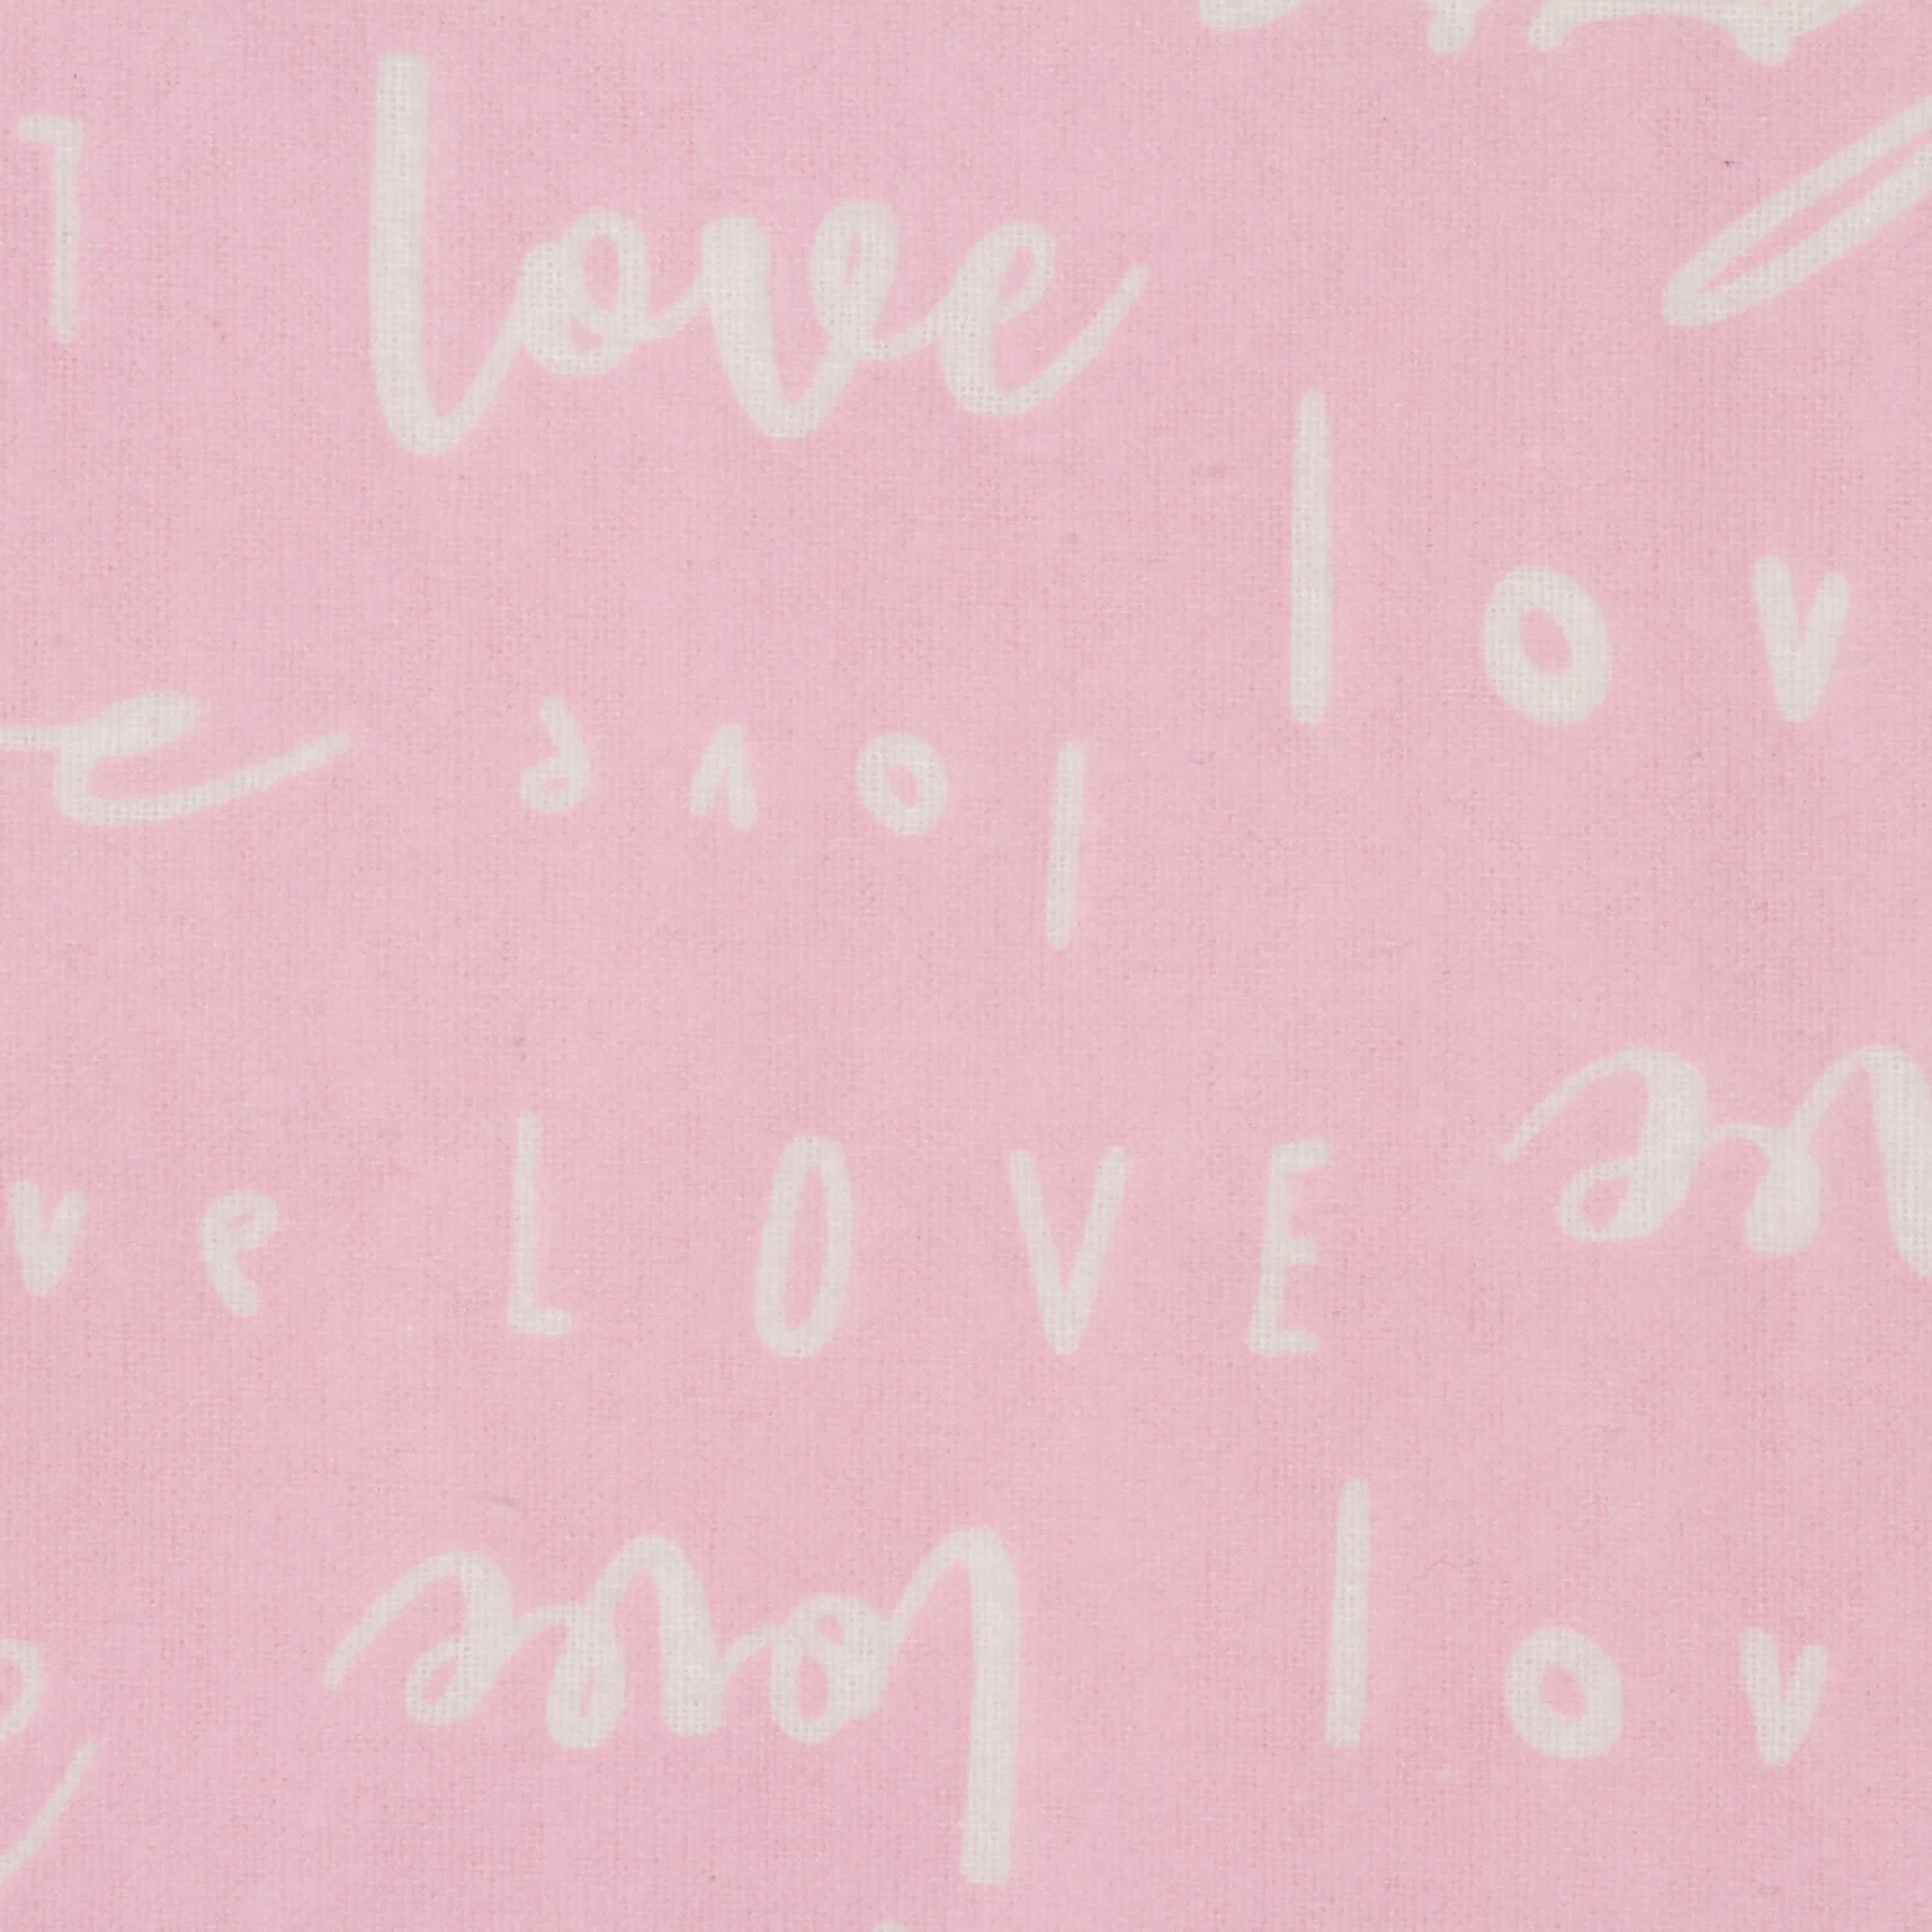 love
lov
love
ve LOVE
love lov